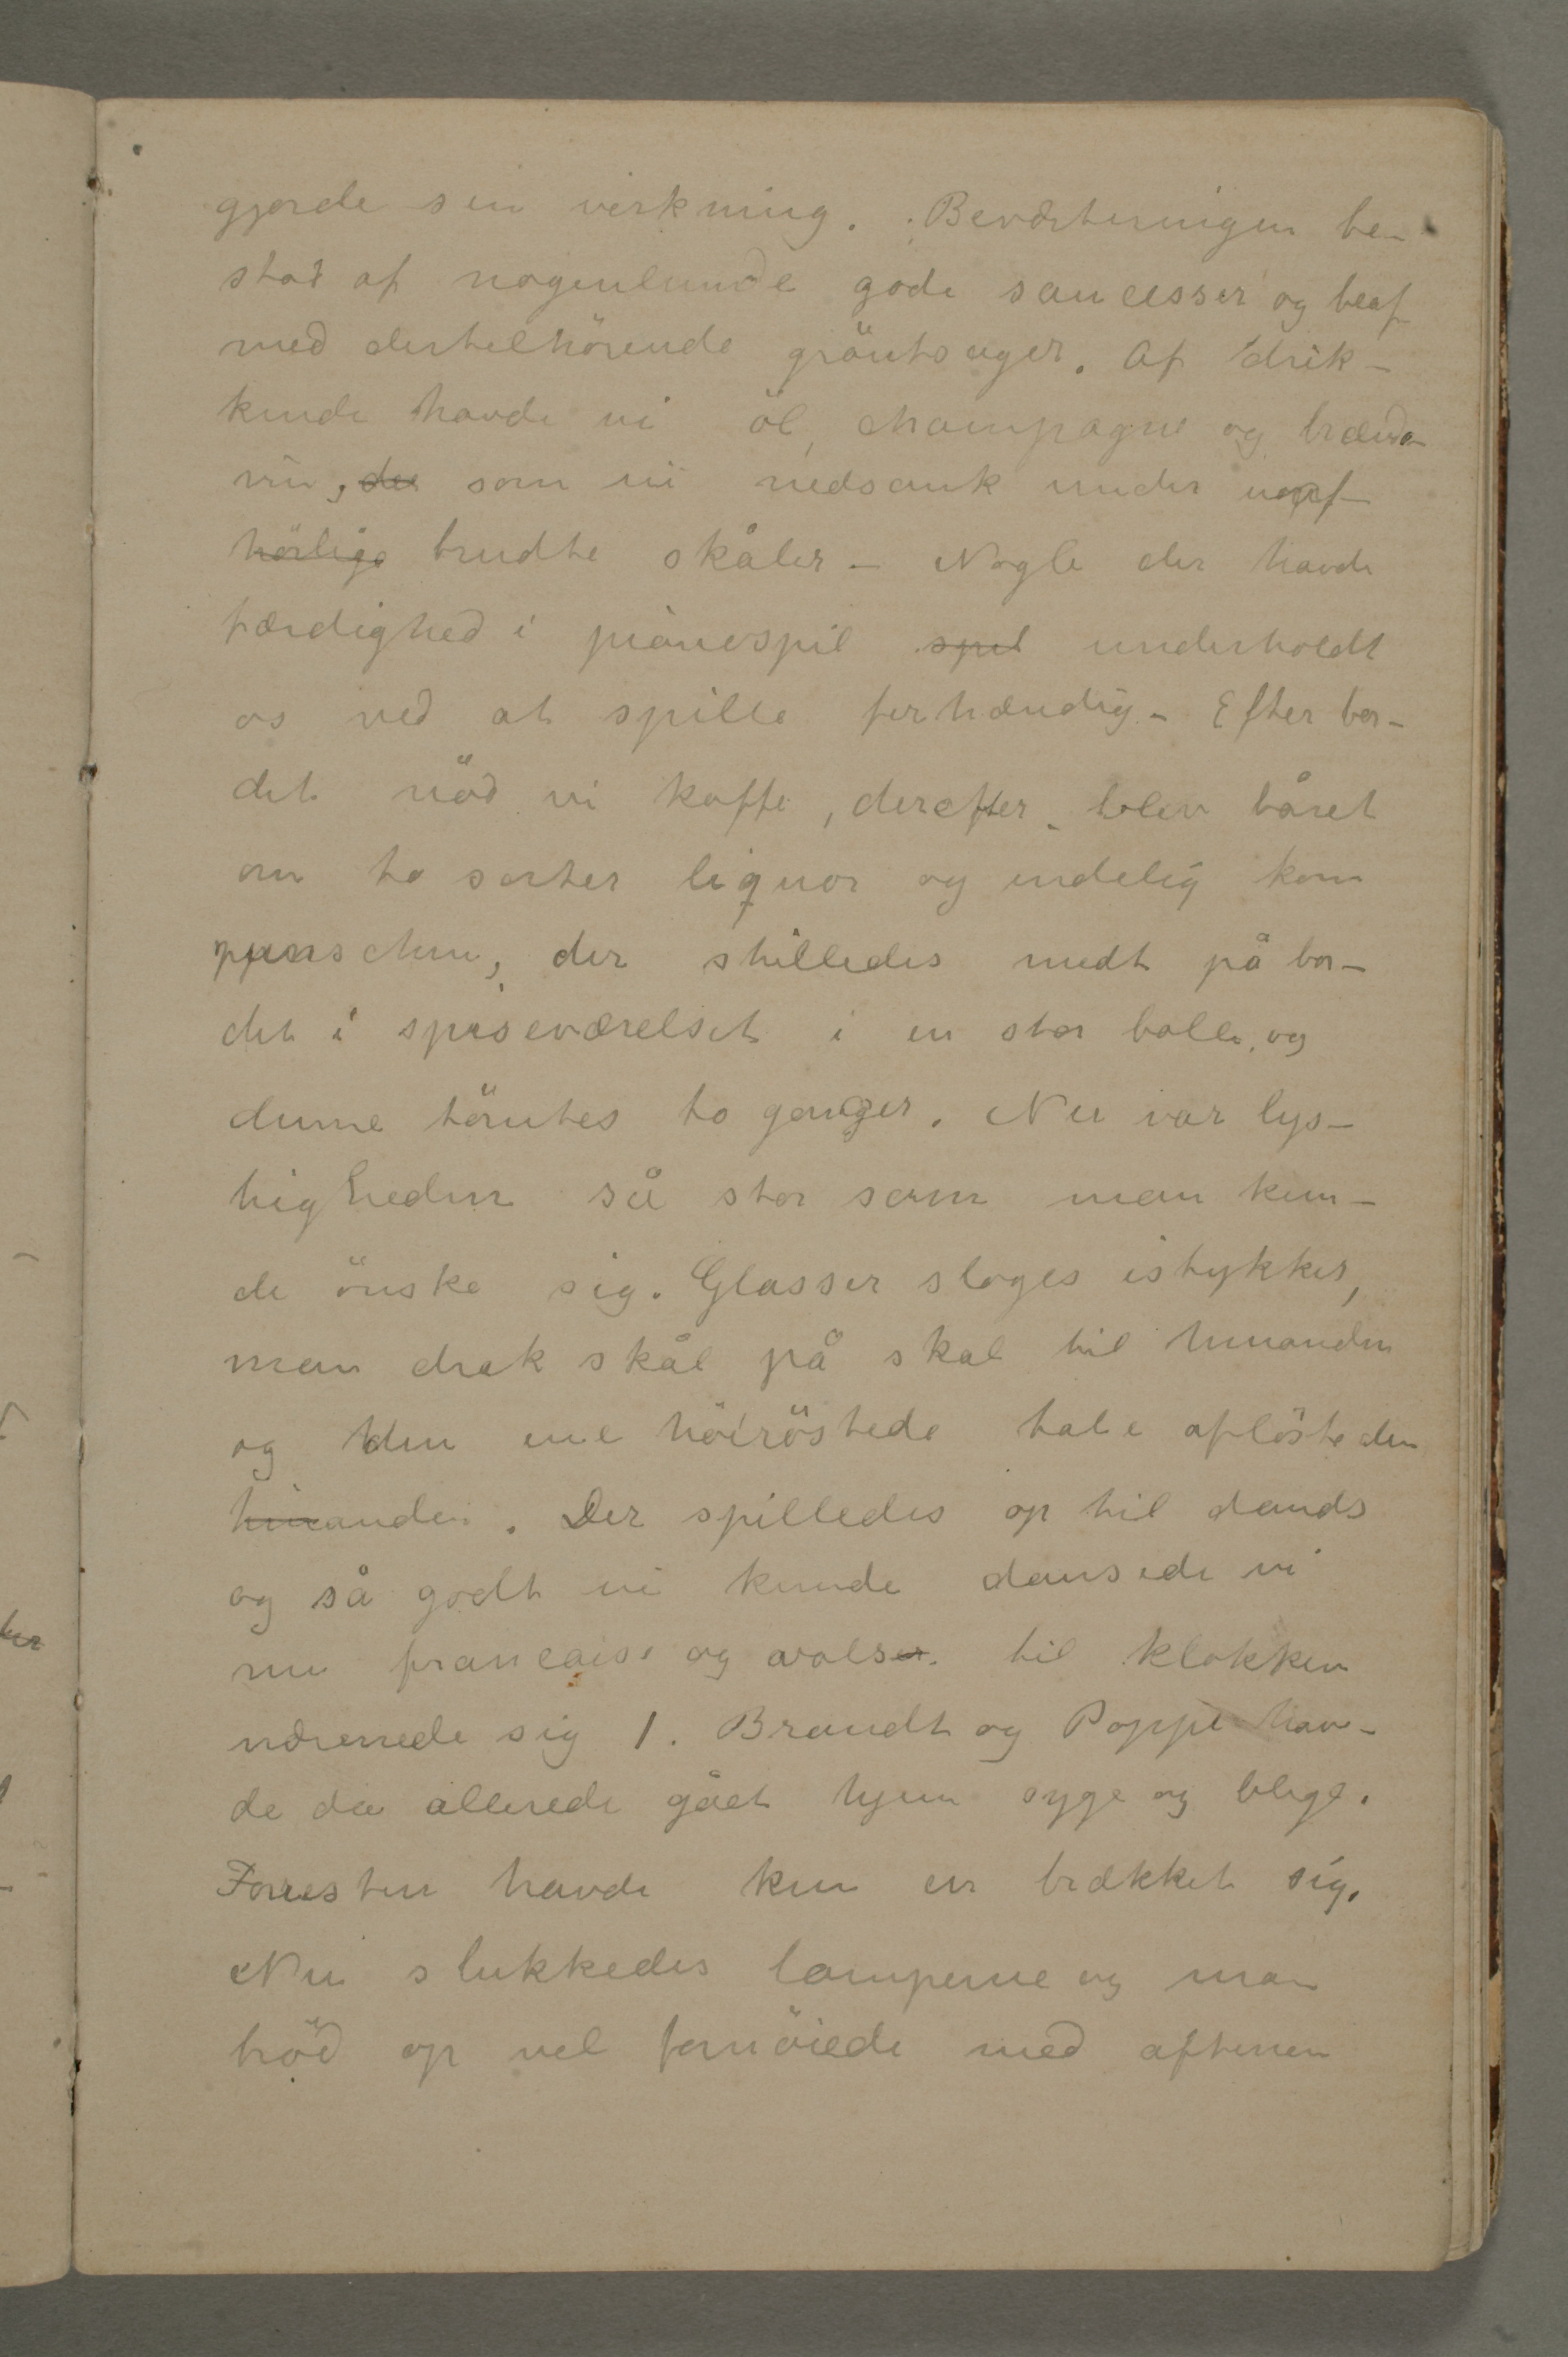 gjorde sin virkning. Beværtningen be-
stod af nogenlunde gode saucesser og beaf
med dertilhörende gröntsager. Af drik-
kende havde vi öl, champagne og brænde-
vin, der som vi nedsank under uopf-
hörlige brudte skåler – Nogle der havde
færdighed i pianospil spil underholdt
os ved at spille firhændig – Efter bor-
det nöd vi kaffe, derefter blev båret
om to sorter liquor og endelig kom
punschen, der stilledes midt på bor-
det i spiseværelset i en stor bolle, og
denne tömtes to ganger. Nu var lys-
tigheden så stor som man kun-
de önske sig. Glasser sloges istykker,
man drak skål på skål til hinanden
og den ene höiröstede tale aflöste den
hinanden. Der spilledes op til dands
og så godt vi kunde dansede vi
nu francaise og valser til klokken
nærmede sig 1. Brandt og Poppe hav-
de da allerede gået hjem syge og blege.
Forresten havde kun en brækket sig.
Nu slukkedes lamperne og man
bröd op vel fornöiede med aftenen